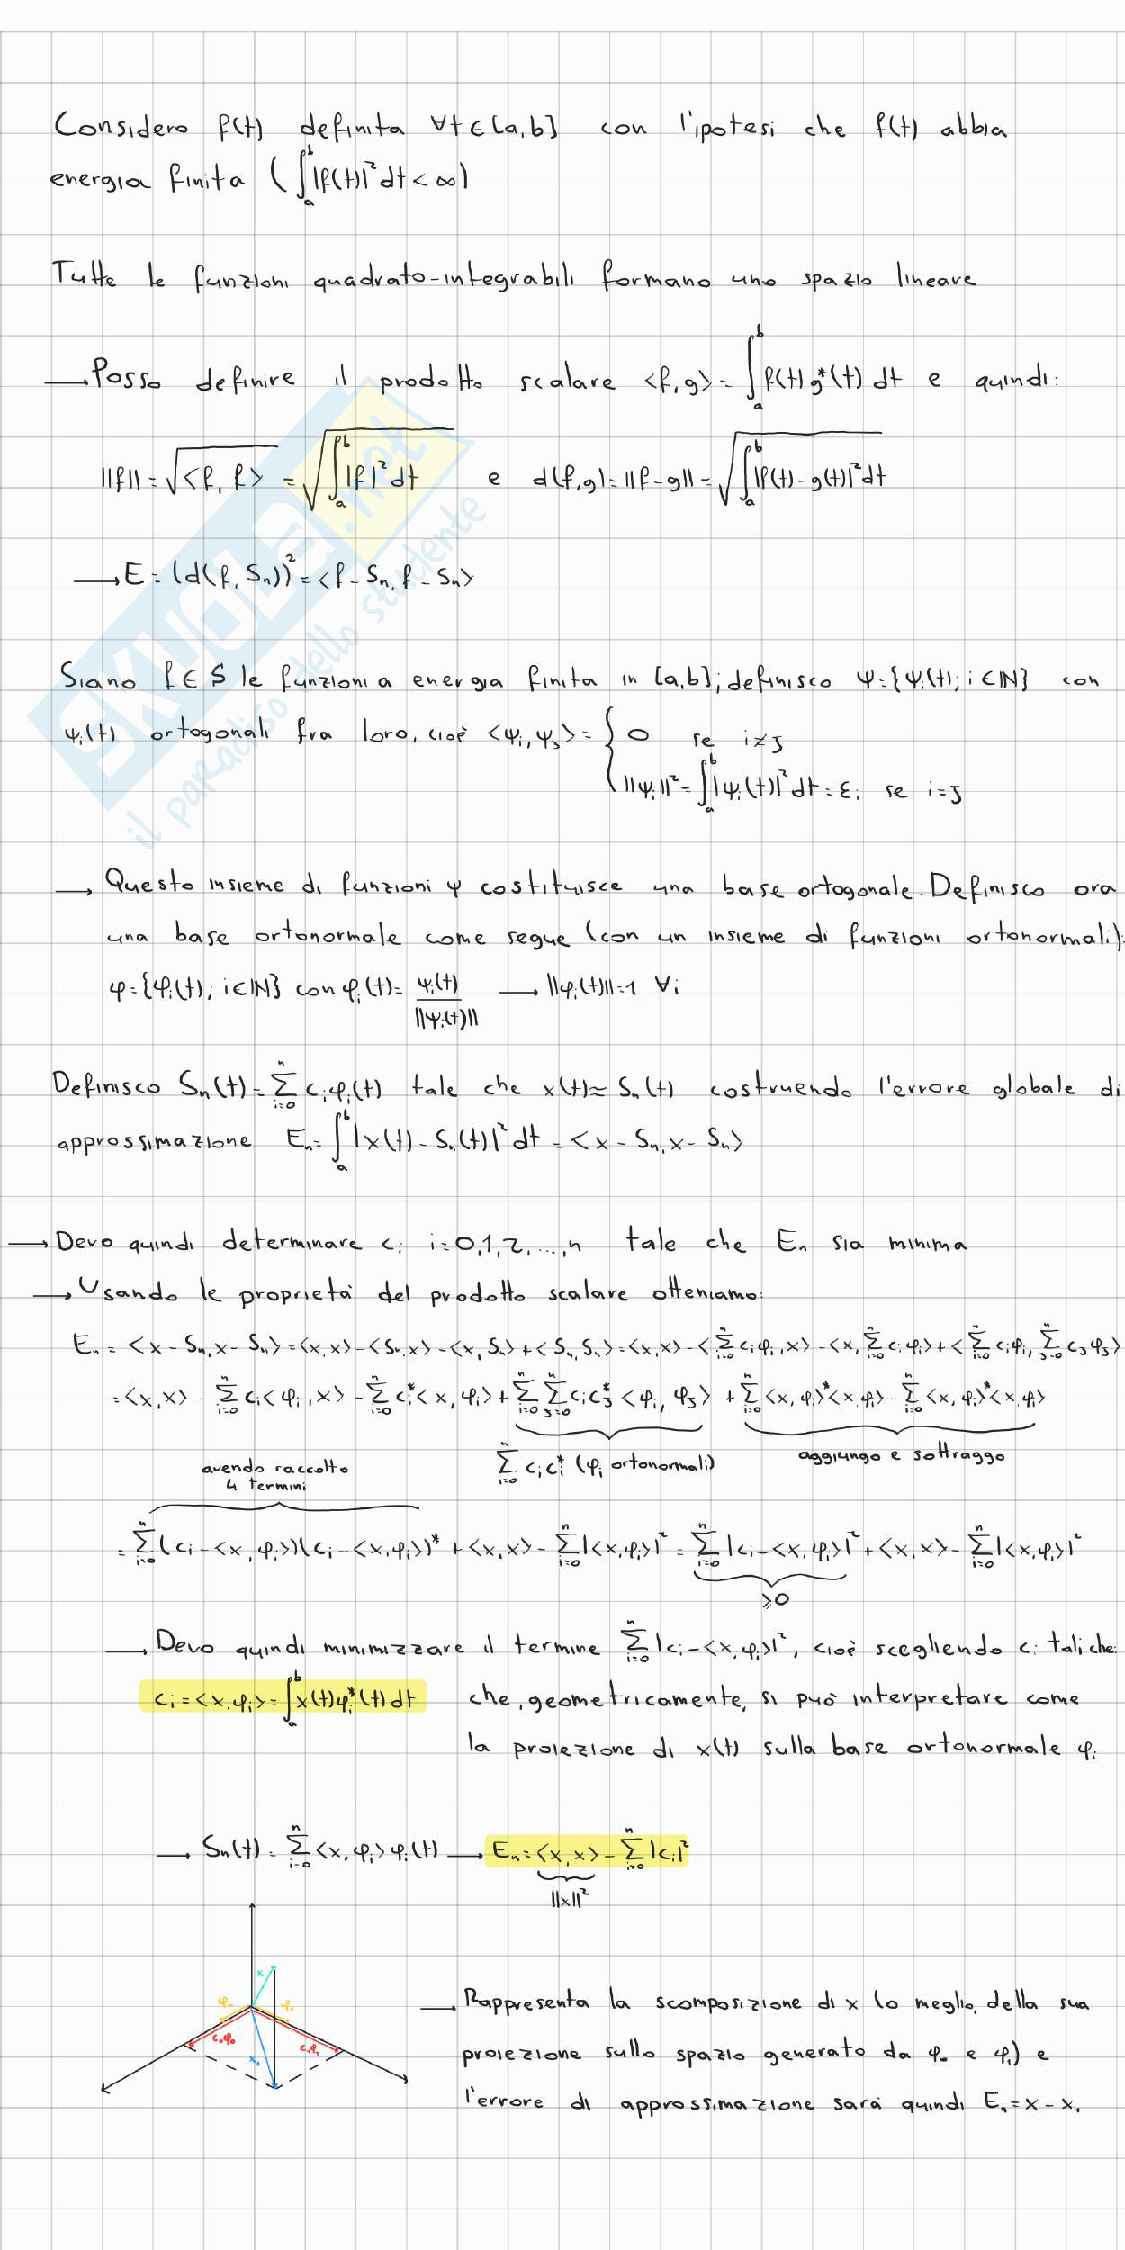 Considero f(t) definita ∀t∈[a,b] con l'ipotesi che f(t) abbia
energia finita (∫_a^b |f(t)|² dt < ∞)
Tutte le funzioni quadrato-integrabili formano uno spazio lineare
→ Posso definire il prodotto scalare <f,g> = ∫_a^b f(t) g*(t) dt e quindi:
||f|| = √<f, f> = √(∫_a^b |f|² dt) e d(f,g) = ||f-g|| = √(∫_a^b |f(t) - g(t)|² dt)
→ E = (d(f, Sn))² = <f - Sn, f - Sn>
Siano f ∈ S le funzioni a energia finita in [a,b]; definisco ψ = {ψi(t); i∈ℕ} con
ψi(t) ortogonali fra loro, cioè <ψi, ψj> = { 0 se i≠j
||ψi||² = ∫_a^b |ψi(t)|² dt = εi se i=j
→ Questo insieme di funzioni ψ costituisce una base ortogonale. Definisco ora
una base ortonormale come segue (con un insieme di funzioni ortonormali):
φ = {φi(t); i∈ℕ} con φi(t) = ψi(t) / ||ψi(t)|| → ||φi(t)|| = 1 ∀i
Definisco Sn(t) = Σ_{i=0}^n ci φi(t) tale che x(t) ≈ Sn(t) costruendo l'errore globale di
approssimazione En = ∫_a^b |x(t) - Sn(t)|² dt = <x - Sn, x - Sn>
→ Devo quindi determinare ci i=0,1,2,...,n tale che En sia minima
→ Usando le proprietà del prodotto scalare otteniamo:
En = <x - Sn, x - Sn> = <x, x> - <Sn, x> - <x, Sn> + <Sn, Sn> = <x, x> - <Σ_{i=0}^n ci φi, x> - <x, Σ_{i=0}^n ci φi> + <Σ_{i=0}^n ci φi, Σ_{j=0}^n cj φj>
= <x, x> - Σ_{i=0}^n ci <φi, x> - Σ_{i=0}^n ci* <x, φi> + Σ_{i=0}^n Σ_{j=0}^n ci cj* <φi, φj> + Σ_{i=0}^n <x, φi>* <x, φi> - Σ_{i=0}^n <x, φi>* <x, φi>
Σ_{i=0}^n ci ci* (φi ortonormali) aggiungo e sottraggo
avendo raccolto
4 termini
= Σ_{i=0}^n (ci - <x, φi>)(ci - <x, φi>)* + <x, x> - Σ_{i=0}^n |<x, φi>|² = Σ_{i=0}^n |ci - <x, φi>|² + <x, x> - Σ_{i=0}^n |<x, φi>|²
≥0
→ Devo quindi minimizzare il termine Σ_{i=0}^n |ci - <x, φi>|², cioè scegliendo ci tali che:
ci = <x, φi> = ∫_a^b x(t) φi*(t) dt che, geometricamente, si può interpretare come
la proiezione di x(t) sulla base ortonormale φi
→ Sn(t) = Σ_{i=0}^n <x, φi> φi(t) → En = <x, x> - Σ_{i=0}^n |ci|²
||x||²
x
φ0 φ1
c0φ0 c1φ1
x1
→ Rappresenta la scomposizione di x (o meglio, della sua
proiezione sullo spazio generato da φ0 e φ1) e
l'errore di approssimazione sarà quindi E1 = x - x1
SKUOLA.net
il paradiso dello studente